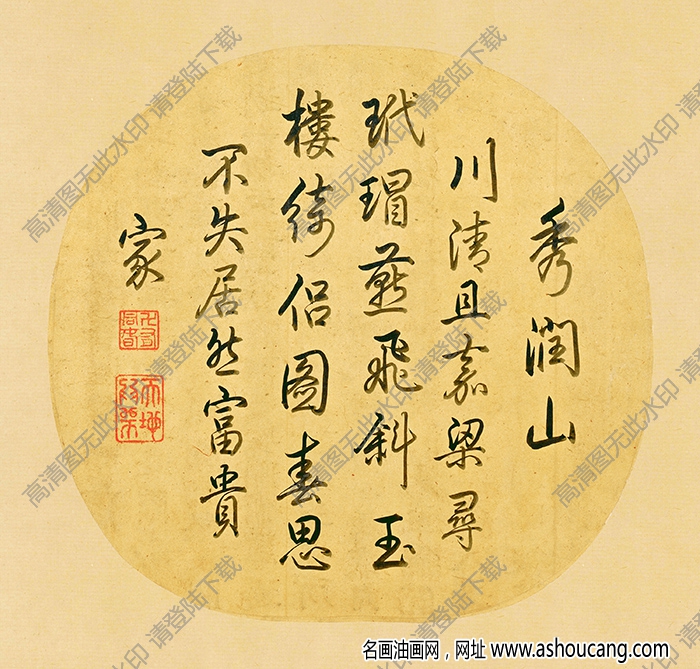 秀潤山
川清且嘉梁尋
玳瑁燕飛斜玉
樓綺侶圖春思
不失居然富貴
家
高清图无此水印 请登陆下载
名画油画网，网址 www.ashoucang.com